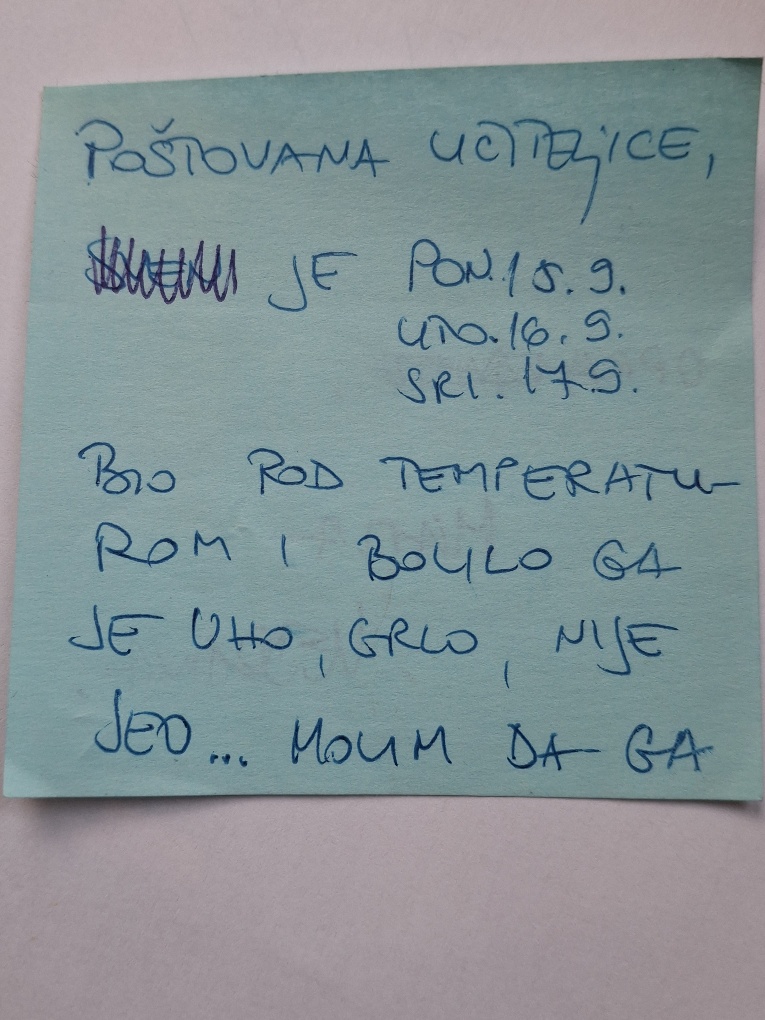 POŠTOVANA UCITELJICE,
JE PON. 15. 9.
UTO. 16. 9.
SRI. 17.9.
BIO POD TEMPERATU-
ROM I BOLILO GA
JE UHO, GRLO, NIJE
JEO... MOLIM DA GA